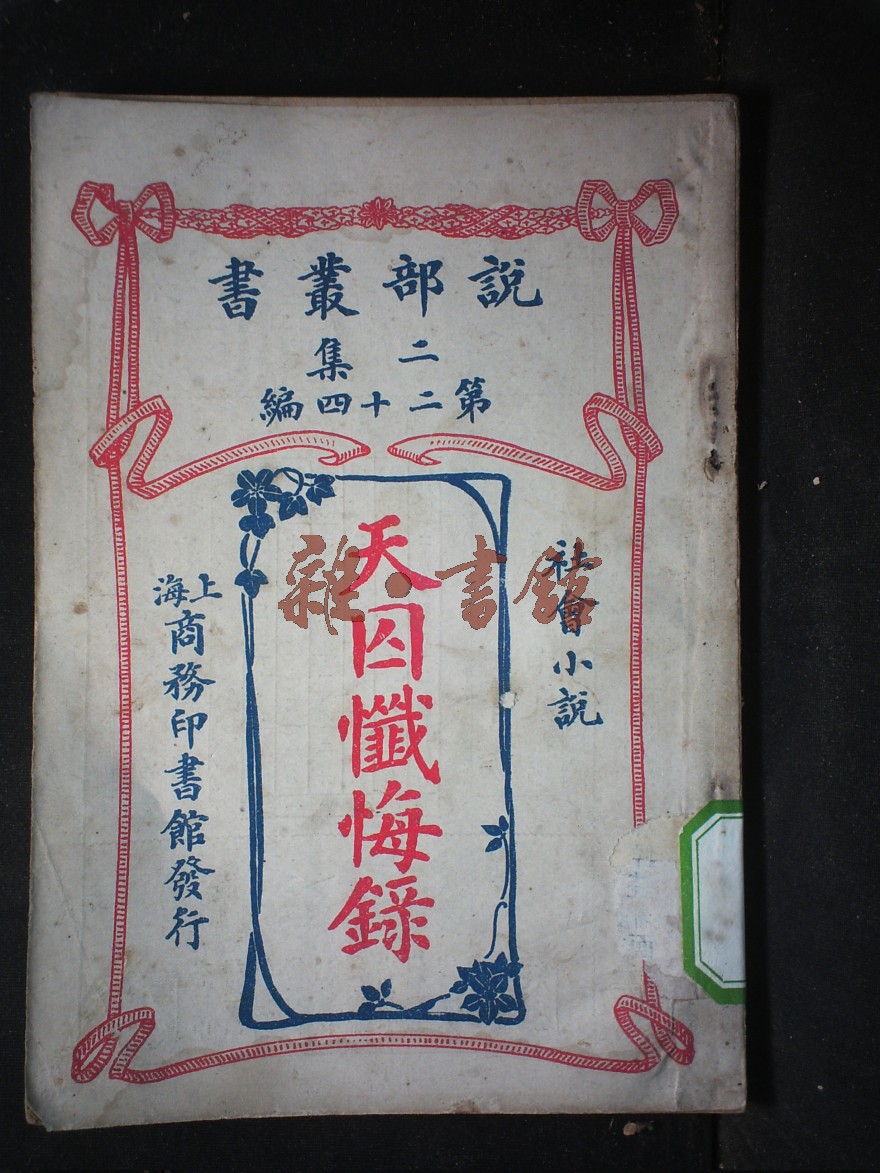 說部叢書
二集
第二十四編
社會小說
天囚懺悔錄
上海
商務印書館發行
雜·書館